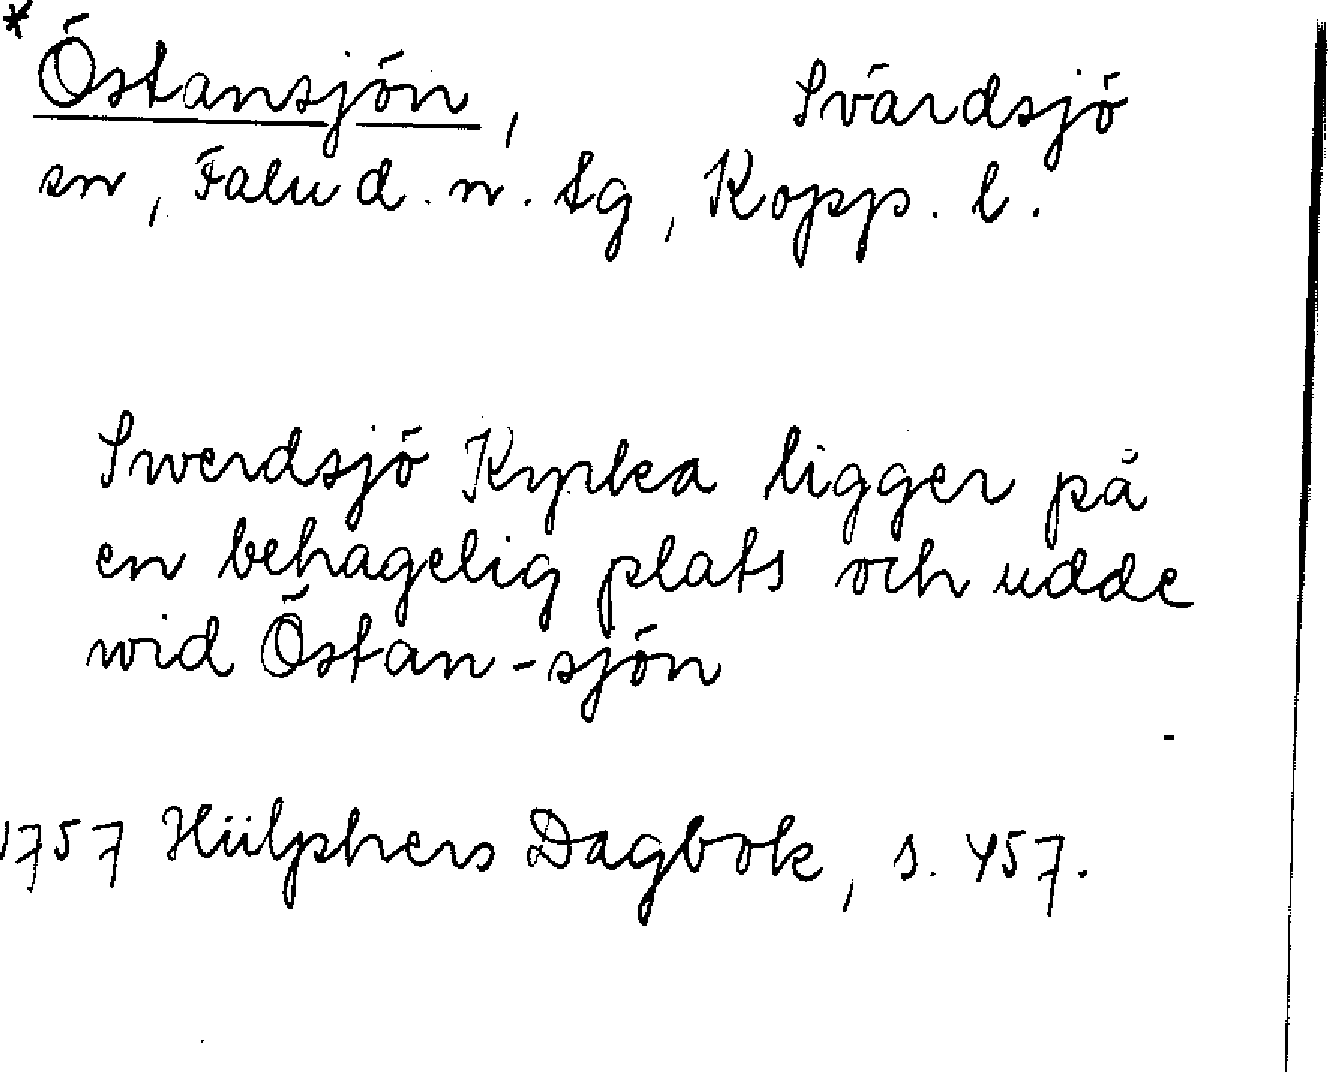 * Östansjön, Svärdsjö
sn, Falu d. n. tg, Kopp. l.
Swerdsjö Kyrka ligger på
en behagelig plats och udde
wid Östan-sjön
1757 Hülphers Dagbok, s. 457.